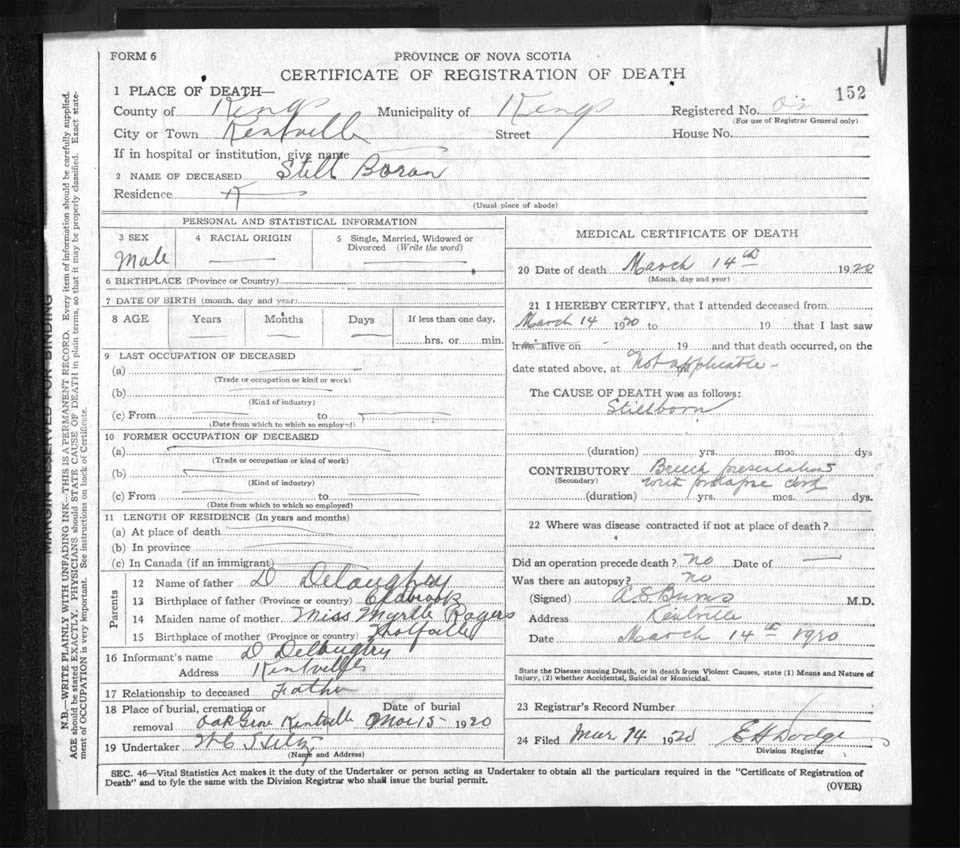 FORM 6
PROVINCE OF NOVA SCOTIA
CERTIFICATE OF REGISTRATION OF DEATH
152
1 PLACE OF DEATH—
County of Kings Municipality of Kings Registered No.
(For use of Registrar General only)
City or Town Kentville Street House No.
If in hospital or institution, give name
2 NAME OF DECEASED Still Boran
Residence K
(Usual place of abode)
PERSONAL AND STATISTICAL INFORMATION
3 SEX Male
4 RACIAL ORIGIN
5 Single, Married, Widowed or Divorced (Write the word)
6 BIRTHPLACE (Province or Country)
7 DATE OF BIRTH (month, day and year)
8 AGE Years Months Days If less than one day, hrs. or min.
9 LAST OCCUPATION OF DECEASED
(a)
(Trade or occupation or kind or work)
(b)
(Kind of industry)
(c) From to
(Date from which to which so employed)
10 FORMER OCCUPATION OF DECEASED
(a)
(Trade or occupation or kind of work)
(b)
(Kind of industry)
(c) From to
(Date from which to which so employed)
11 LENGTH OF RESIDENCE (In years and months)
(a) At place of death
(b) In province
(c) In Canada (if an immigrant)
Parents
12 Name of father D
13 Birthplace of father (Province or country)
14 Maiden name of mother Miss Myrtle Rogers
15 Birthplace of mother (Province or country)
16 Informant's name D
Address Kentville
17 Relationship to deceased Father
18 Place of burial, cremation or removal Oak Grove Kentville
Date of burial Mar 15 1920
19 Undertaker
(Name and Address)
MEDICAL CERTIFICATE OF DEATH
20 Date of death March 14th 1920
(Month, day and year)
21 I HEREBY CERTIFY, that I attended deceased from
March 14 1920 to 19 that I last saw
h alive on 19 and that death occurred, on the
date stated above, at Not applicable -
The CAUSE OF DEATH was as follows:
Stillborn
(duration) yrs. mos. dys
CONTRIBUTORY Breech presentation
(Secondary) with prolapse cord
(duration) yrs. mos. dys.
22 Where was disease contracted if not at place of death?
Did an operation precede death? No Date of
Was there an autopsy? no
(Signed) A.E. Burns M.D.
Address Kentville
Date March 14th 1920
State the Disease causing Death, or in death from Violent Causes, state (1) Means and Nature of
Injury, (2) whether Accidental, Suicidal or Homicidal.
23 Registrar's Record Number
24 Filed Mar 14 1920 E H Dodge
Division Registrar
SEC. 46—Vital Statistics Act makes it the duty of the Undertaker or person acting as Undertaker to obtain all the particulars required in the "Certificate of Registration of
Death" and to fyle the same with the Division Registrar who shall issue the burial permit.
(OVER)
MARGIN RESERVED FOR BINDING
N.B.—WRITE PLAINLY WITH UNFADING INK—THIS IS A PERMANENT RECORD. Every item of information should be carefully supplied.
AGE should be stated EXACTLY. PHYSICIANS should STATE CAUSE OF DEATH in plain terms, so that it may be properly classified. Exact statement
of OCCUPATION is very important. See instructions on back of Certificate.